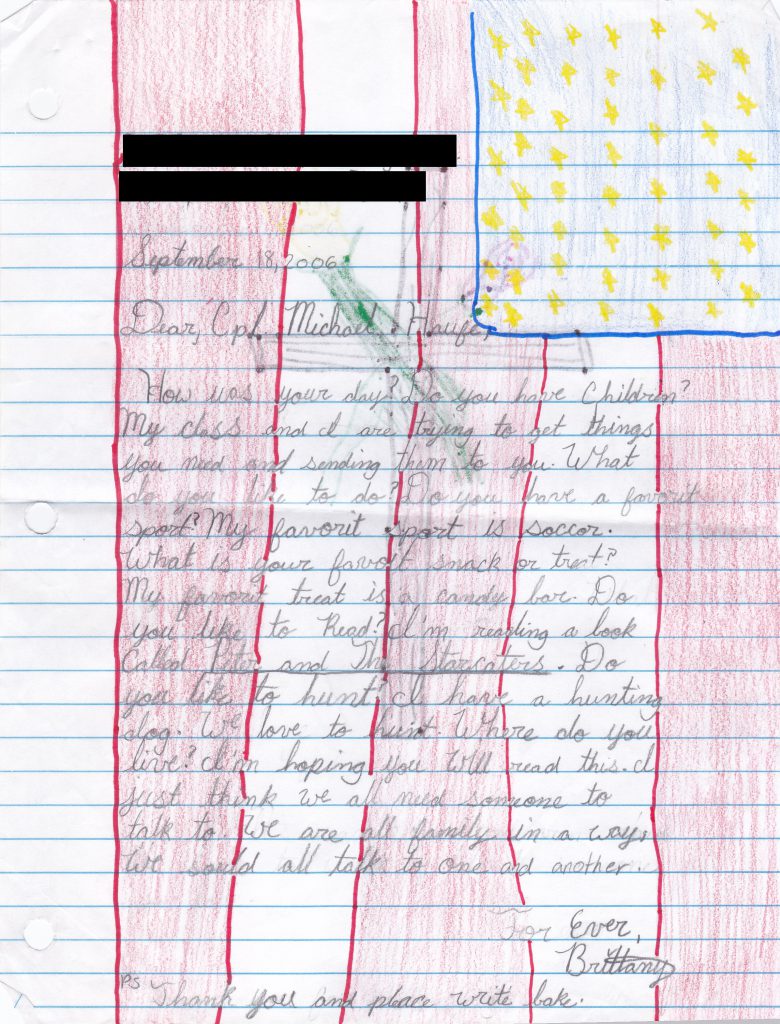 September 18, 2006
Dear, Cpl. Michael Haufe,
How was your day? Do you have Children?
My class and I are trying to get things
you need and sending them to you. What
do you like to do? Do you have a favorit
sport? My favorit sport is soccor.
What is your favoit snack or treat?
My favorit treat is a candy bar. Do
you like to Read? I'm reading a book
Called Peter and The Starcaters. Do
you like to hunt? I have a hunting
dog. We love to hunt. Where do you
live? I'm hoping you Will read this. I
just think we all need someone to
talk to. We are all family in a way,
We sould all talk to one and another.
For Ever,
Brittany
PS
Thank you and pleace write bake.